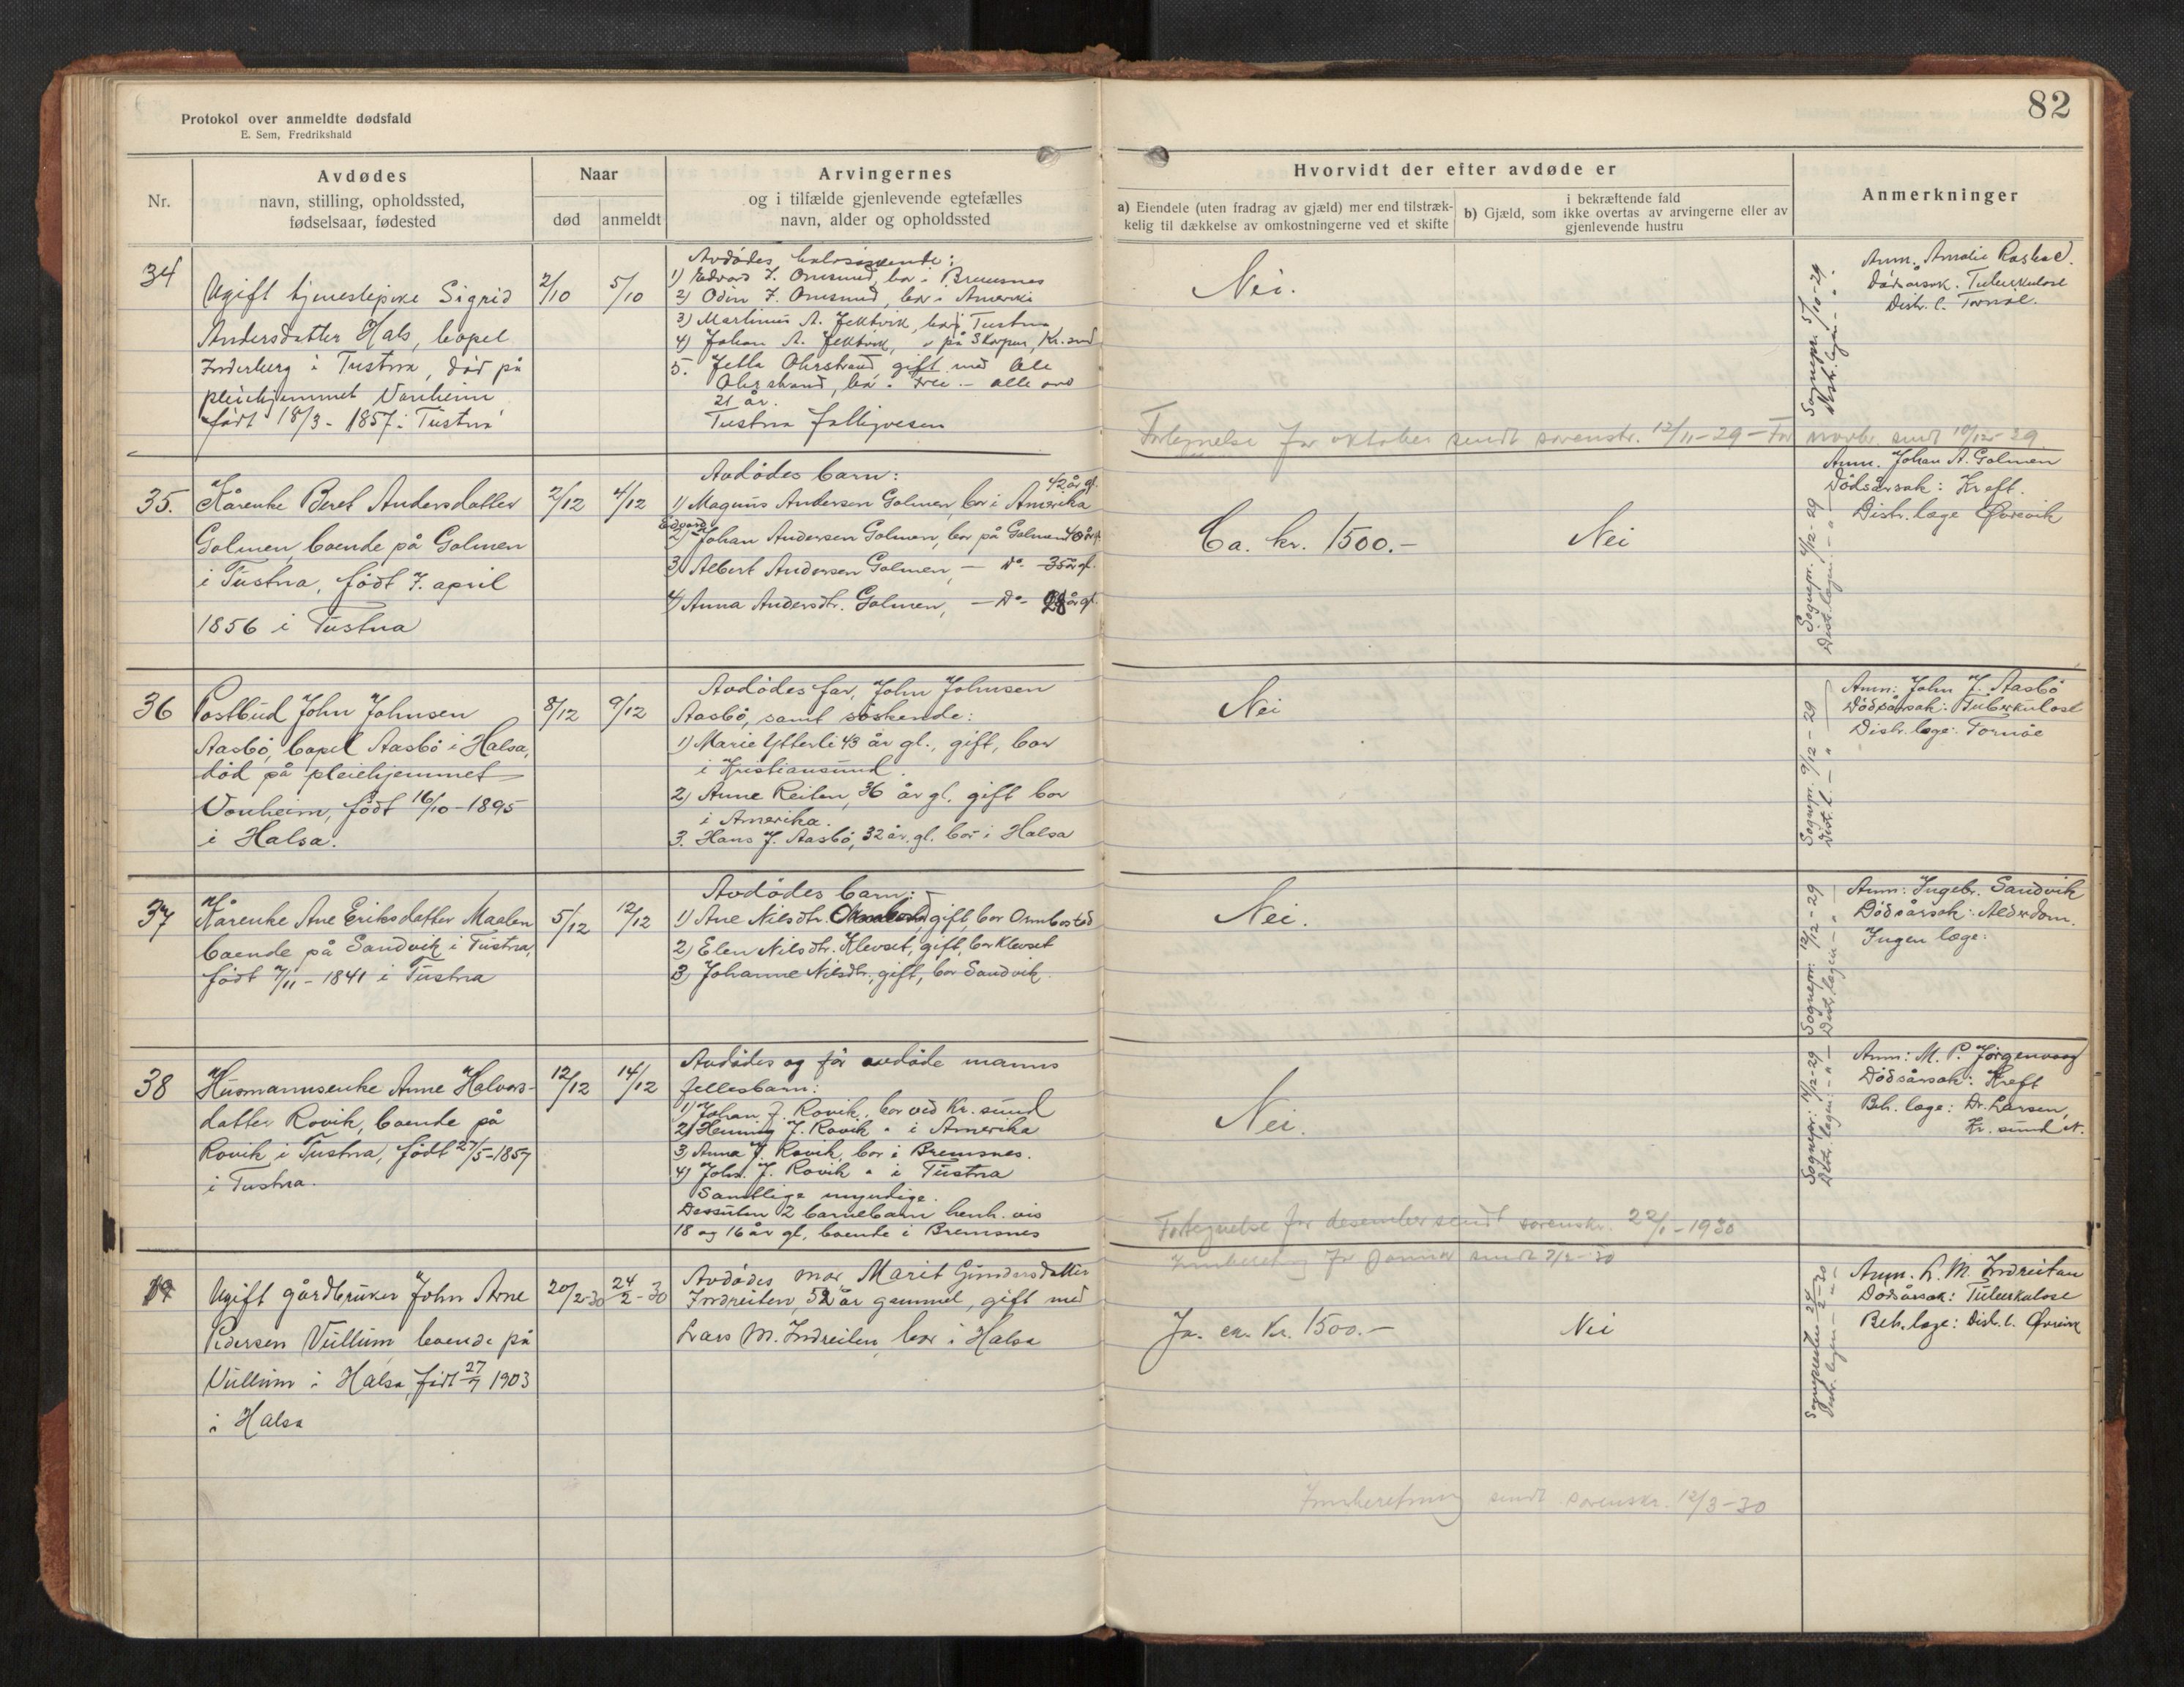 82
Protokol over anmeldte dødsfald
E. Sem, Fredrikshald
Nr.
Avdødes
navn, stilling, opholdssted,
fødselsaar, fødested
Naar
død
anmeldt
Arvingernes
og i tilfælde gjenlevende egtefælles
navn, alder og opholdssted
Hvorvidt der efter avdøde er
a) Eiendele (uten fradrag av gjæld) mer end tilstræk-
kelig til dækkelse av omkostningerne ved et skifte
i bekræftende fald
b) Gjæld, som ikke overtas av arvingerne eller av
gjenlevende hustru
Anmerkninger
34
Ugift tjenestepike Sigrid
Andersdatter Hals, bopel
Inderberg i Tustna, död på
pleiehjemmet Vonheim
født 18/3 - 1857 i Tustna
2/10
5/10
Avdødes halvsøskende:
1) Edvard J. Omsund, bor i Bremsnes
2) Odin J. Omsund, bor i Amerika
3) Martinus A. Jektvik, bor i Tustna
4) Johan A. Jektvik, " på Skorpen, Kr.sund
5. Jetta Ohrstrand, gift med Ole
Ohrstrand, bor i Frei - alle over
21 år.
Tustna fattigvesen
Nei.
Sognepr. 5/10-29
Distr. lægen - " -
Anm. Amalie
Dødsårsak. Tuberkulose
Distr. l. Tornöe.
Fortegnelse for oktober sendt sorenskr. 12/11-29 - For novbr. sendt 10/12-29
35.
Kårenke Beret Andersdatter
Golmen, boende på Golmen
i Tustna, født 7. april
1856 i Tustna
2/12
4/12
Avdødes barn:
1) Magnus Andersen Golmen, bor i Amerika 42 år gl.
2) Edvard Johan Andersen Golmen, bor på Golmen 40 år gl.
3) Albert Andersen Golmen, - Do - 35 år gl.
4) Anna Andersdtr. Golmen, - Do - 28 år gl.
Ca. kr. 1500.-
Nei
Sognepr. 4/12-29
Distr. lægen. - " -
Anm. Johan A. Golmen
Dødsårsak: Kreft.
Distr. læge Øvrevik
36
Postbud John Johnsen
Aasbö, bopel Aasbö i Halsa,
död på pleiehjemmet
Vonheim, født 16/10-1895
i Halsa.
8/12
9/12
Avdødes far, John Johnsen
Aasbö, samt söskende:
1) Marie Ytterli 43 år gl., gift, bor
i Kristiansund.
2) Anne Reiten, 36 år gl. gift bor
i Amerika.
3. Hans J. Aasbö, 32 år. gl. bor i Halsa
Nei
Sognepr. 9/12-29
Distr. l. - " -
Anm: John J. Aasbö
Dødsårsak: Tuberkulose
Distr. læge: Tornöe
37
Kårenke Ane Eriksdatter Maalen
boende på Sandvik i Tustna,
født 7/11 - 1841 i Tustna
5/12
12/12
Avdødes barn:
1) Ane Nilsdtr. gift, bor Ormbostad
2) Elen Nilsdtr. Klevset, gift, bor Klevset
3) Johanne Nilsdtr., gift, bor Sandvik.
Nei.
Sognepr. 12/12-29
Distr. lægen - " -
Anm: Ingebr. Sandvik
Dødsårsak: Alderdom.
Ingen læge.
38
Husmannsenke Anne Halvors-
datter Rovik, boende på
Rovik i Tustna, født 27/5-1857
i Tustna.
12/12
14/12
Avdødes og för avdøde manns
fellesbarn:
1) Johan J. Rovik, bor ved Kr. sund
2) Henning J. Rovik " i Amerika
3) Anna J. Rovik, bor i Bremsnes.
4) John. J. Rovik " i Tustna
Samtlige myndige.
Dessuten 2 barnebarn henh. vis
18 og 16 år gl, boende i Bremsnes
Nei.
Sognepr: 14/12-29
Distr. lægen: - " -
Anm: M. P. Jörgenvaag
Dødsårsak: Kreft
Beh. læge: Dr. Larsen,
Kr. sund N.
Fortegnelse for desember sendt sorenskr. 22/1-1930
Innberetning for januar sendt 7/2-30
Ugift gårdbruker John Arne
Pedersen Vullum boende på
Vullum i Halsa, født 27/7 1903
i Halsa
20/2-30
24/2-30
Avdødes mor, Marit Gundersdatter
Indreiten, 52 år gammel, gift med
Lars M. Indreiten, bor i Halsa
Ja. ca. kr. 1500.-
Nei
Sognepresten 24/2-30
Distr. lægen - " -
Anm. L. M. Indreiten
Dødsårsak: Tuberkulose
Beh. læge: Distr. l. Øvrevik
Innberetning sendt sorenskr. 12/3-30